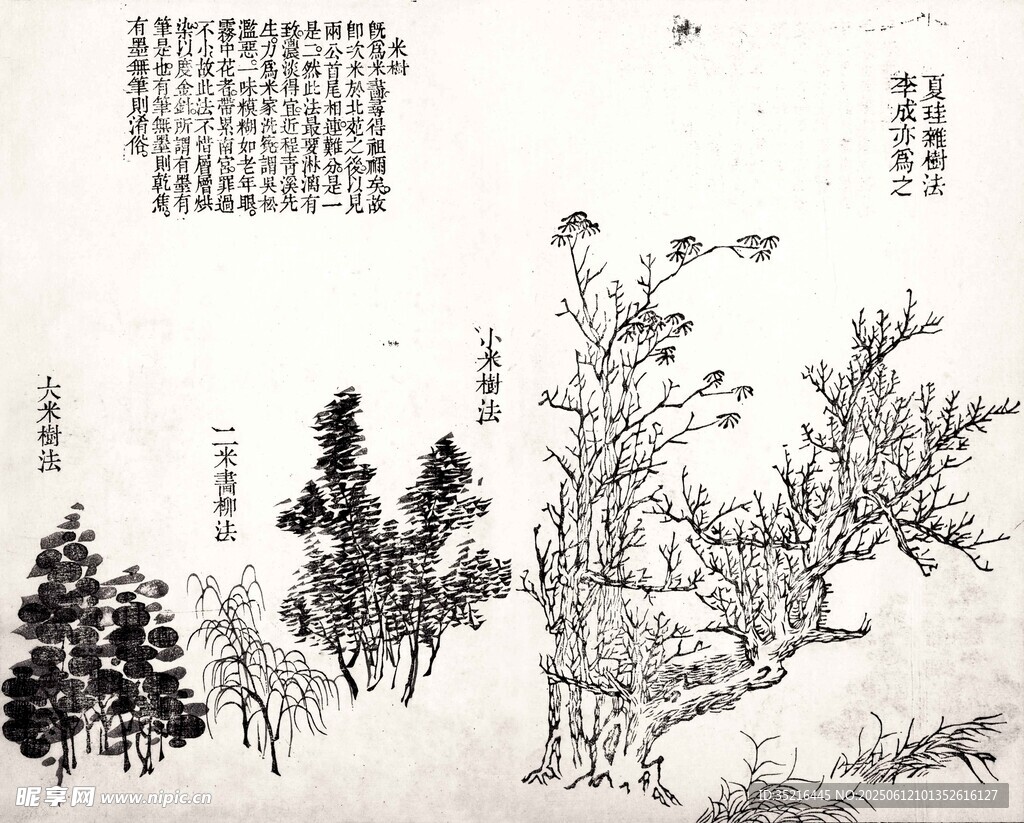 夏珪雜樹法
李成亦爲之
米樹
既爲米畫尋得祖禰矣。故
即次米於北苑之後。以見
兩公首尾相連難分。是一
是二。然此法最要淋漓有
致。濃淡得宜。近程青溪先
生。力爲米家洗寃。謂吳松
濫惡。一味糢糊。如老年眼。
霧中花者。帶累南宮。罪過
不小。故此法不惜層層烘
染。以度金針。所謂有墨有
筆是也。有筆無墨則乾焦。
有墨無筆則溷俗。
小米樹法
二米畫柳法
大米樹法
昵享网 www.nipic.cn
ID:35216445 NO:20250612101352616127